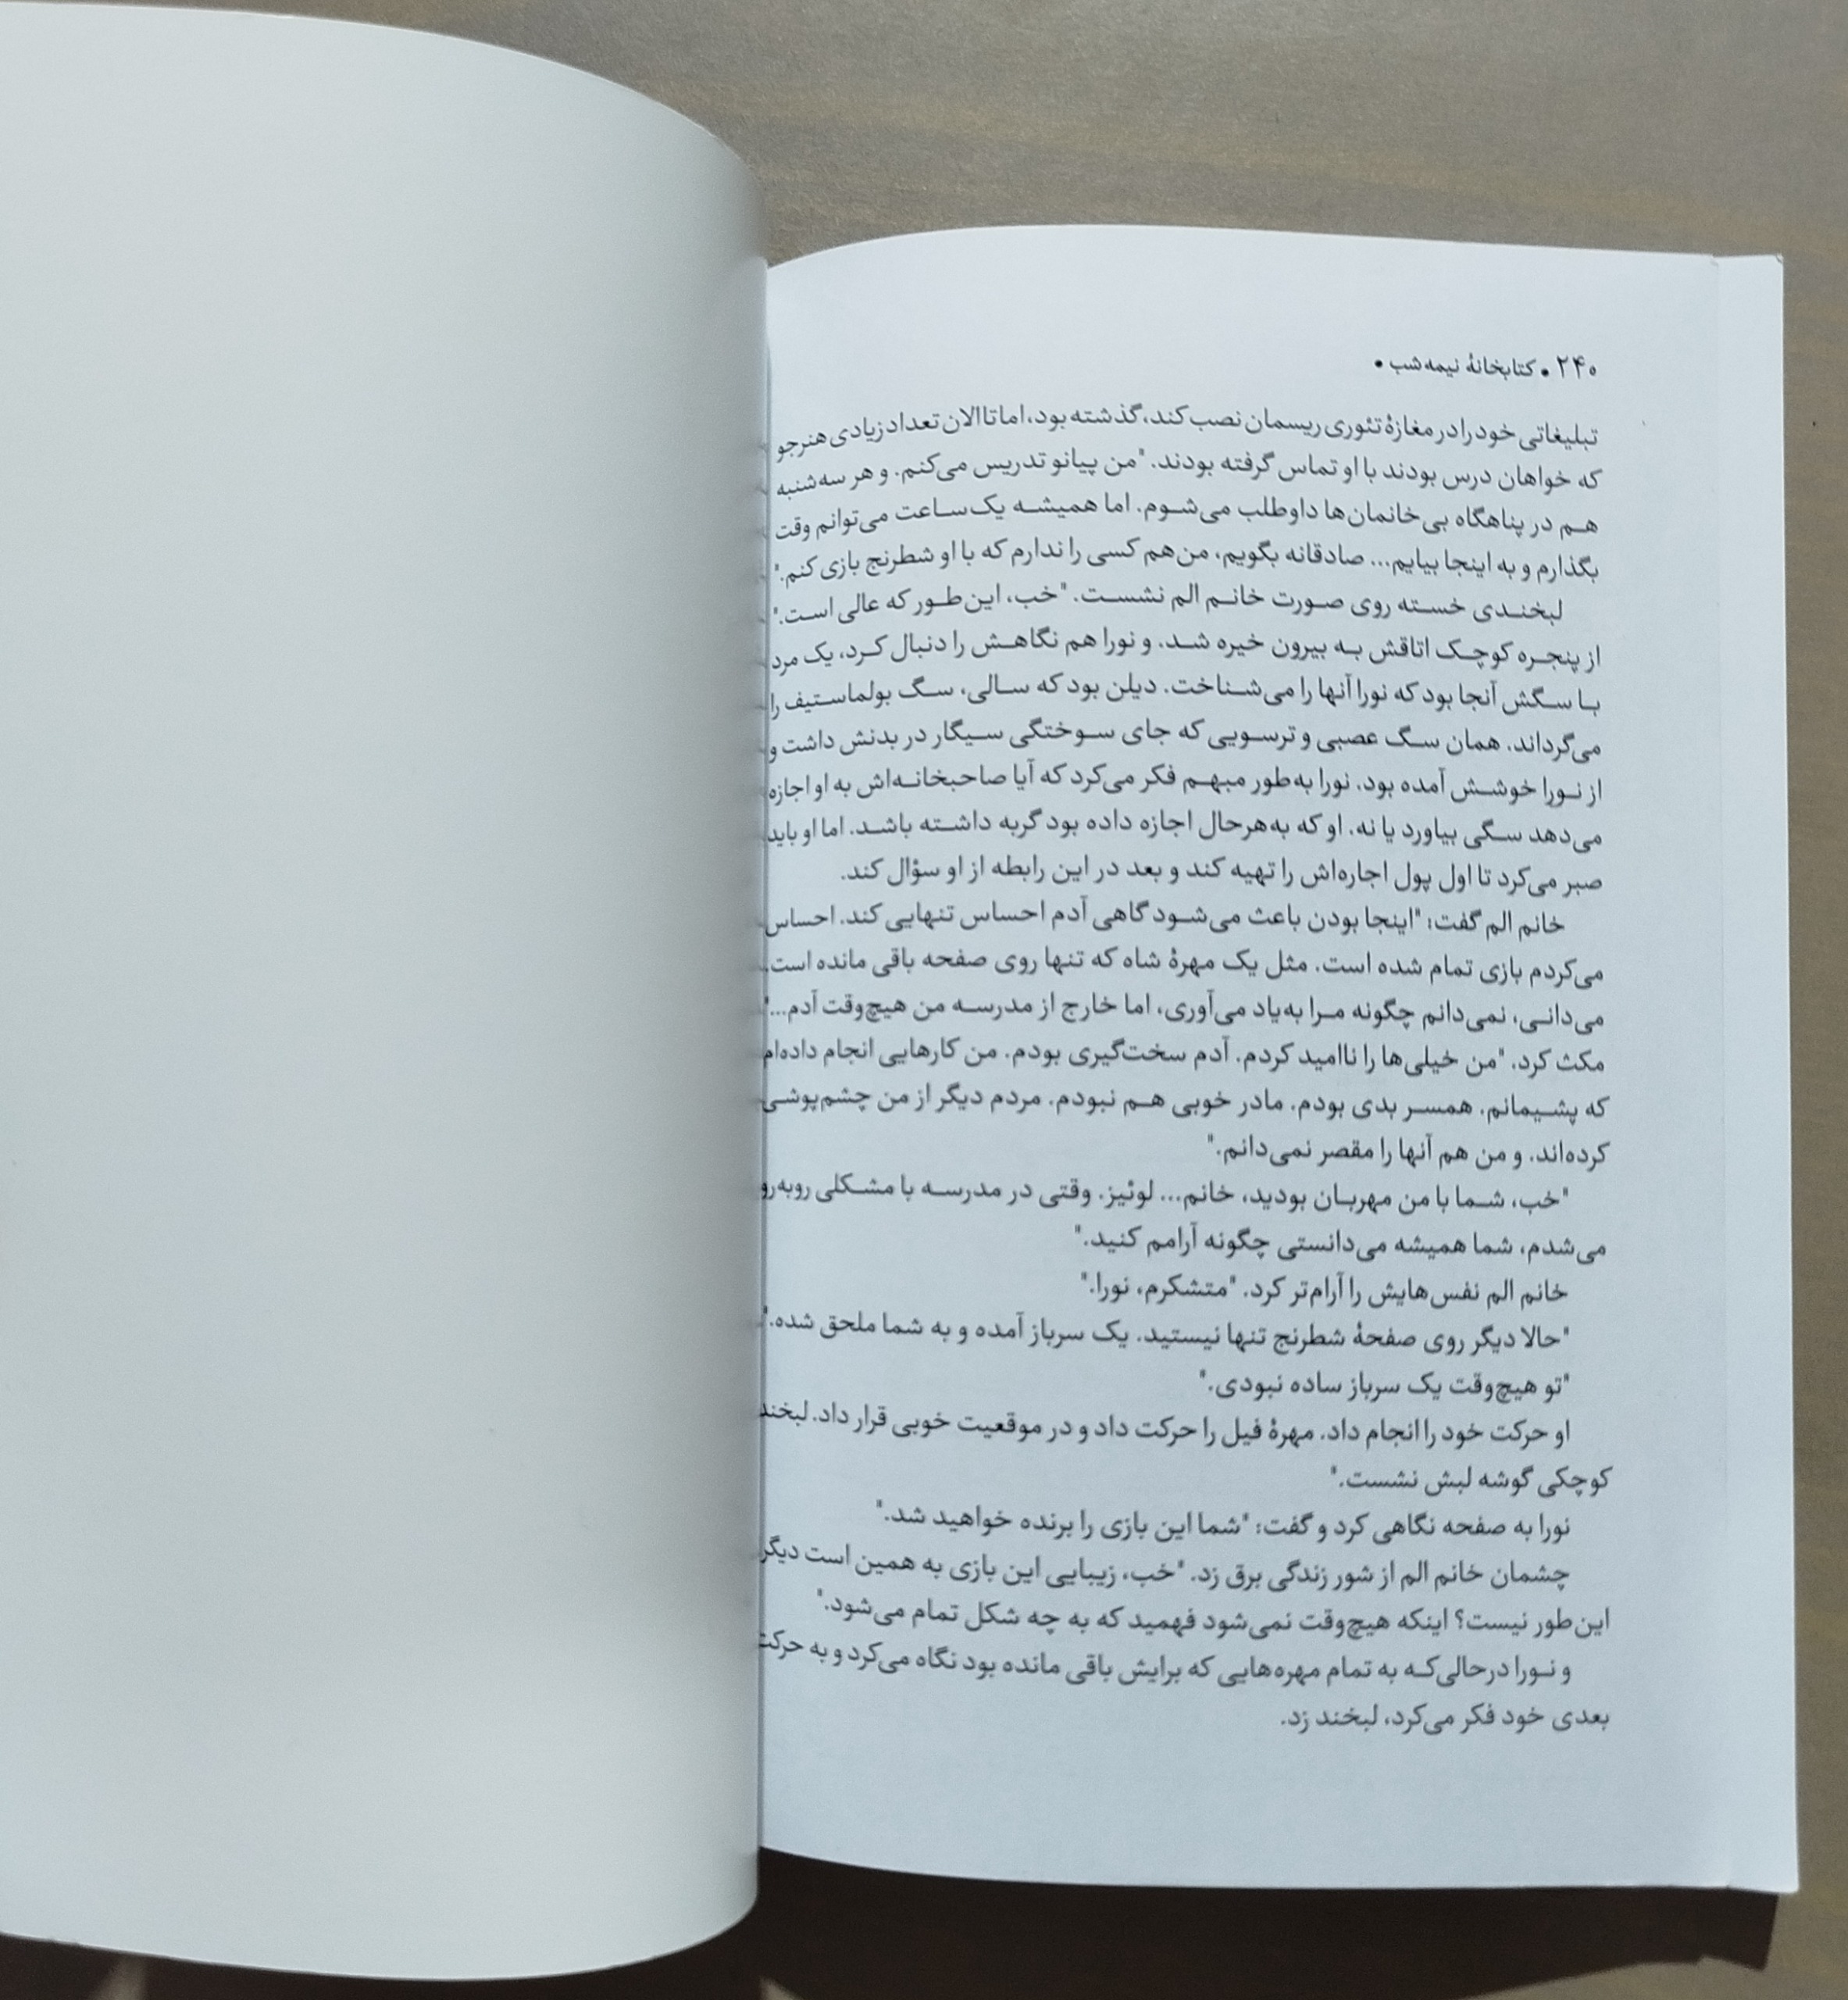 ۲۴۰ • کتابخانهٔ نیمه‌شب •
تبلیغاتی خود را در مغازهٔ تئوری ریسمان نصب کند، گذشته بود، اما تا الان تعداد زیادی هنرجو
که خواهان درس بودند با او تماس گرفته بودند. "من پیانو تدریس می‌کنم. و هر سه‌شنبه
هم در پناهگاه بی‌خانمان‌ها داوطلب می‌شوم. اما همیشه یک ساعت می‌توانم وقت
بگذارم و به اینجا بیایم... صادقانه بگویم، من هم کسی را ندارم که با او شطرنج بازی کنم."
لبخندی خسته روی صورت خانم الم نشست. "خب، این‌طور که عالی است."
از پنجره کوچک اتاقش به بیرون خیره شد. و نورا هم نگاهش را دنبال کرد، یک مرد
با سگش آنجا بود که نورا آنها را می‌شناخت. دیلن بود که سالی، سگ بولماستیف را
می‌گرداند. همان سگ عصبی و ترسویی که جای سوختگی سیگار در بدنش داشت و
از نورا خوشش آمده بود. نورا به‌طور مبهم فکر می‌کرد که آیا صاحبخانه‌اش به او اجازه
می‌دهد سگی بیاورد یا نه. او که به‌هرحال اجازه داده بود گربه داشته باشد. اما او باید
صبر می‌کرد تا اول پول اجاره‌اش را تهیه کند و بعد در این رابطه از او سؤال کند.
خانم الم گفت: "اینجا بودن باعث می‌شود گاهی آدم احساس تنهایی کند. احساس
می‌کردم بازی تمام شده است. مثل یک مهرهٔ شاه که تنها روی صفحه باقی مانده است.
می‌دانی، نمی‌دانم چگونه مرا به‌یاد می‌آوری، اما خارج از مدرسه من هیچ‌وقت آدم..."
مکث کرد. "من خیلی‌ها را ناامید کردم. آدم سخت‌گیری بودم. من کارهایی انجام داده‌ام
که پشیمانم. همسر بدی بودم. مادر خوبی هم نبودم. مردم دیگر از من چشم‌پوشی
کرده‌اند. و من هم آنها را مقصر نمی‌دانم."
"خب، شما با من مهربان بودید، خانم... لوئیز. وقتی در مدرسه با مشکلی روبه‌رو
می‌شدم، شما همیشه می‌دانستی چگونه آرامم کنید."
خانم الم نفس‌هایش را آرام‌تر کرد. "متشکرم، نورا."
"حالا دیگر روی صفحهٔ شطرنج تنها نیستید. یک سرباز آمده و به شما ملحق شده."
"تو هیچ‌وقت یک سرباز ساده نبودی."
او حرکت خود را انجام داد. مهرهٔ فیل را حرکت داد و در موقعیت خوبی قرار داد. لبخند
کوچکی گوشه لبش نشست."
نورا به صفحه نگاهی کرد و گفت: "شما این بازی را برنده خواهید شد."
چشمان خانم الم از شور زندگی برق زد. "خب، زیبایی این بازی به همین است دیگر
این‌طور نیست؟ اینکه هیچ‌وقت نمی‌شود فهمید که به چه شکل تمام می‌شود."
و نورا درحالی‌که به تمام مهره‌هایی که برایش باقی مانده بود نگاه می‌کرد و به حرکت
بعدی خود فکر می‌کرد، لبخند زد.